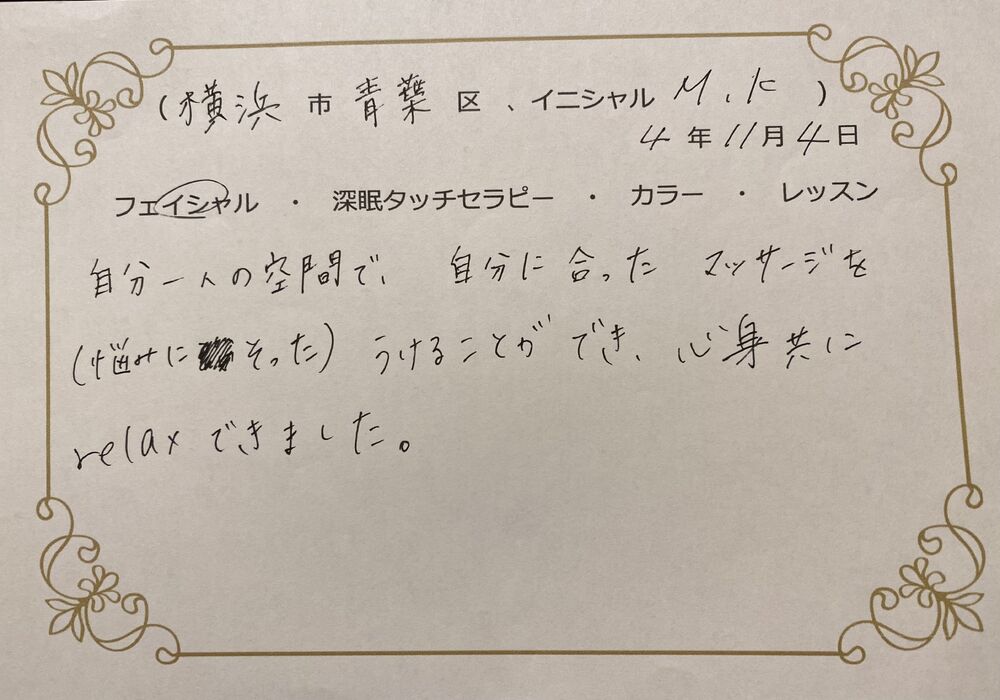 (横浜市青葉区、イニシャル M.K)
4年11月4日
フェイシャル ・ 深眠タッチセラピー ・ カラー ・ レッスン
自分一人の空間で、自分に合ったマッサージを
(悩みにそった)うけることができ、心身共に
relaxできました。